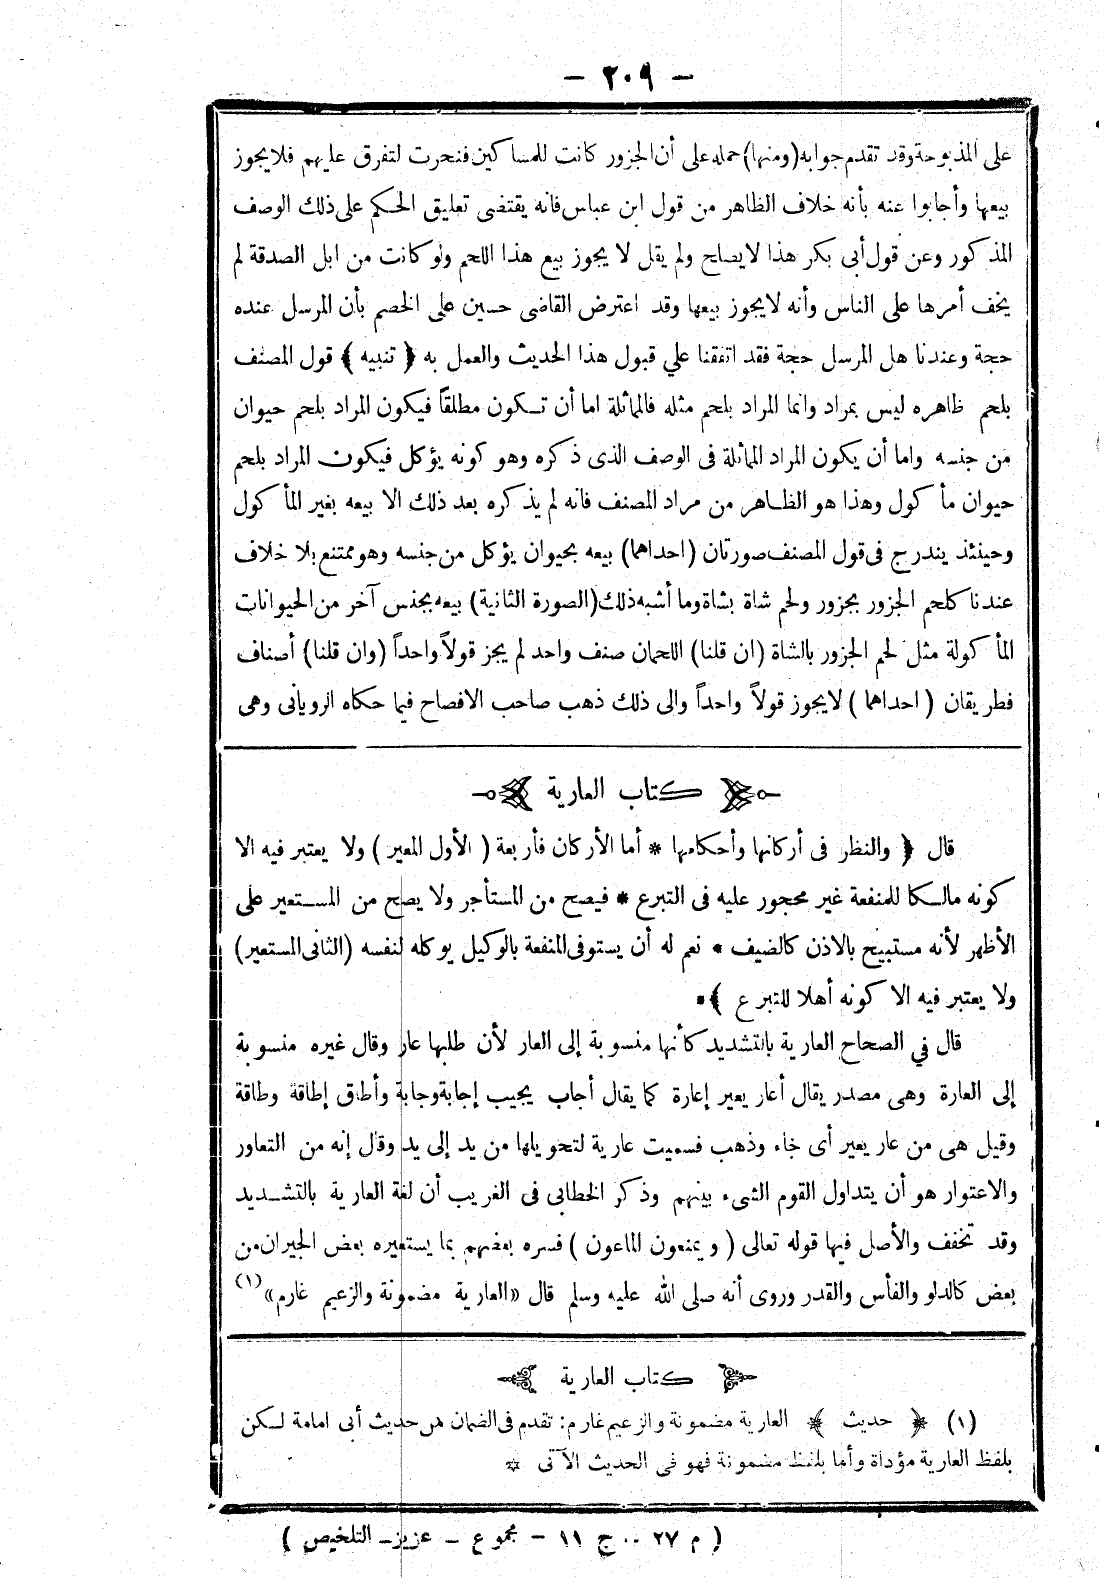 - ٢٠٩ -
على المذبوحة وقد تقدم جوابه (ومنها) حمله على أن الجزور كانت للمساكين فنحرت لتفرق عليهم فلا يجوز
بيعها وأجابوا عنه بأنه خلاف الظاهر من قول ابن عباس فانه يقتضى تعليق الحكم على ذلك الوصف
المذكور وعن قول أبى بكر هذا لا يصلح ولم يقل لا يجوز بيع هذا اللحم ولو كانت من ابل الصدقة لم
يخف أمرها على الناس وأنه لا يجوز بيعها وقد اعترض القاضى حسين على الخصم بأن المرسل عنده
حجة وعندنا هل المرسل حجة فقد اتفقنا علي قبول هذا الحديث والعمل به ﴿ تنبيه ﴾ قول المصنف
بلحم ظاهره ليس بمراد وانما المراد بلحم مثله فالمماثلة اما أن تكون مطلقاً فيكون المراد بلحم حيوان
من جنسه واما أن يكون المراد المماثلة فى الوصف الذى ذكره وهو كونه يؤكل فيكون المراد بلحم
حيوان مأكول وهذا هو الظاهر من مراد المصنف فانه لم يذكره بعد ذلك الا بيعه بغير المأكول
وحينئذ يندرج فى قول المصنف صورتان (احداهما) بيعه بحيوان يؤكل من جنسه وهو ممتنع بلا خلاف
عندنا كلحم الجزور بجزور ولحم شاة بشاة وما أشبه ذلك (الصورة الثانية) بيعه بجنس آخر من الحيوانات
المأكولة مثل لحم الجزور بالشاة (ان قلنا) اللحمان صنف واحد لم يجز قولاً واحداً (وان قلنا) أصناف
فطريقان ( احداهما ) لا يجوز قولاً واحداً والى ذلك ذهب صاحب الافصاح فيما حكاه الرويانى وهى
كتاب العارية
قال ﴿ والنظر فى أركانها وأحكامها * أما الأركان فأربعة ( الأول المعير ) ولا يعتبر فيه الا
كونه مالكا للمنفعة غير محجور عليه فى التبرع * فيصح من المستأجر ولا يصح من المستعير على
الأظهر لأنه مستبيح بالاذن كالضيف * نعم له أن يستوفى المنفعة بالوكيل يوكله لنفسه (الثانى المستعير)
ولا يعتبر فيه الا كونه أهلا للتبرع ﴾*
قال في الصحاح العارية بالتشديد كأنها منسوبة إلى العار لأن طلبها عار وقال غيره منسوبة
إلى العارة وهى مصدر يقال أعار يعير إعارة كما يقال أجاب يجيب إجابة وجابة وأطاق إطاقة وطاقة
وقيل هى من عار يعير أى جاء وذهب فسميت عارية لتحويلها من يد إلى يد وقال إنه من التعاور
والاعتوار هو أن يتداول القوم الشىء بينهم وذكر الخطابى فى الغريب أن لغة العارية بالتشديد
وقد تخفف والأصل فيها قوله تعالى ( ويمنعون الماعون ) فسره بعضهم بما يستعيره بعض الجيران من
بعض كالدلو والفأس والقدر وروى أنه صلى الله عليه وسلم قال «العارية مضمونة والزعيم غارم» (١)
كتاب العارية
(١) ﴿ حديث ﴾ العارية مضمونة والزعيم غارم: تقدم فى الضمان من حديث أبى امامة لكن
بلفظ العارية مؤداة وأما بلفظ مضمونة فهو فى الحديث الآتى *
( م ٢٧ .. ج ١١ - مجموع - عزيز - التلخيص )